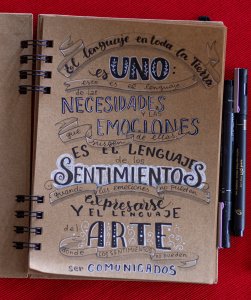 El lenguaje en toda la tierra
es UNO:
este es el lenguaje
de las NECESIDADES
y las
EMOCIONES
que nacen de ellas
ES EL LENGUAJE
de los
SENTIMIENTOS
cuando las emociones no pueden
expresarse
Y EL LENGUAJE
del ARTE
donde LOS SENTIMIENTOS no pueden
ser COMUNICADOS